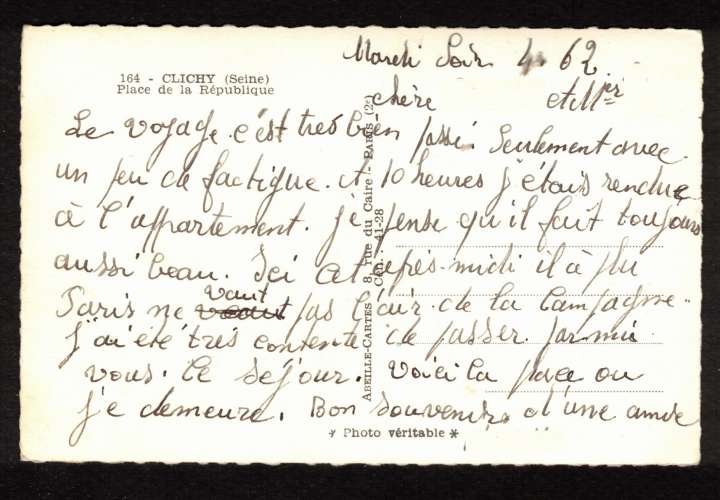 Mardi Soir 4.62
164 - CLICHY (Seine)
Place de la République
chère et Mr
Le voyage c'est très bien passé. Seulement avec
un peu de factigue. A 10 heures j'étais rendue
à l'appartement. je pense qu'il fait toujours
aussi beau. Ici cet après-midi il à plu
Paris ne vaut pas l'air de la Campagne.
j'ai été très contente de passer parmi
vous. le séjour. Voici la place ou
je demeure. Bon souvenir d'une amie
ABEILLE-CARTES - 8, rue du Caire - PARIS (2e)
Cen. : 41-28
Photo véritable *